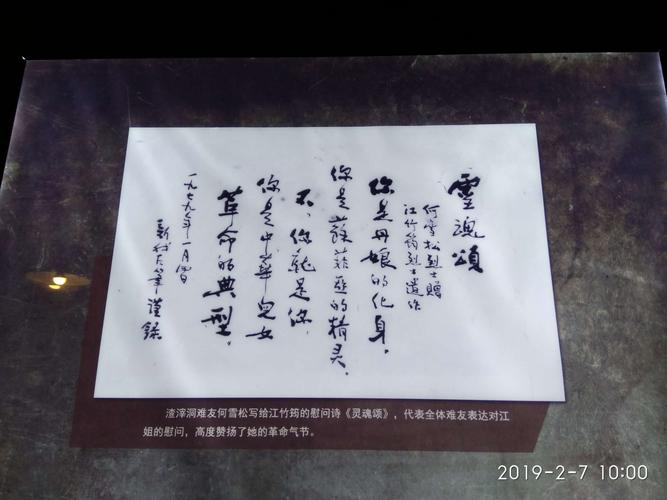 靈魂頌
何雪松烈士贈
江竹筠烈士遺作
你是丹娘的化身，
你是蘇菲亞的精灵，
不，你就是你，
你是中華兒女
革命的典型。
一九七九年一月四日
謹錄
渣滓洞难友何雪松写给江竹筠的慰问诗《灵魂颂》，代表全体难友表达对江
姐的慰问，高度赞扬了她的革命气节。
2019-2-7 10:00